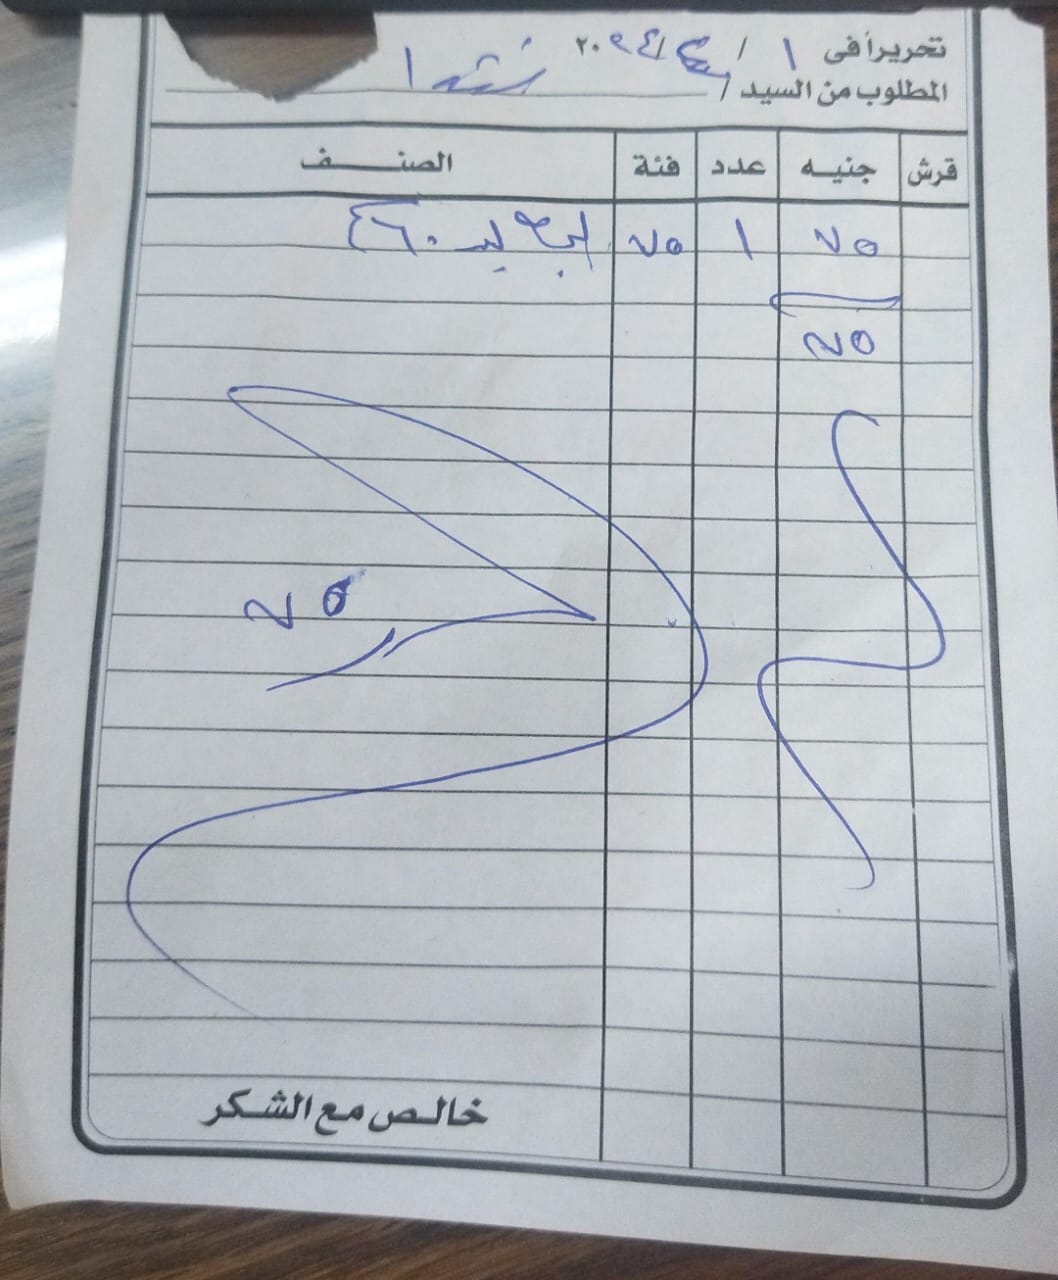 تحريراً فى ١ / ٤ / ٢٠٢٤
المطلوب من السيد / نقدا
قرش جنيه عدد فئة الصنف
٧٥ ١ ٧٥ ٤٦٠
٧٥
٧٥
خالص مع الشكر